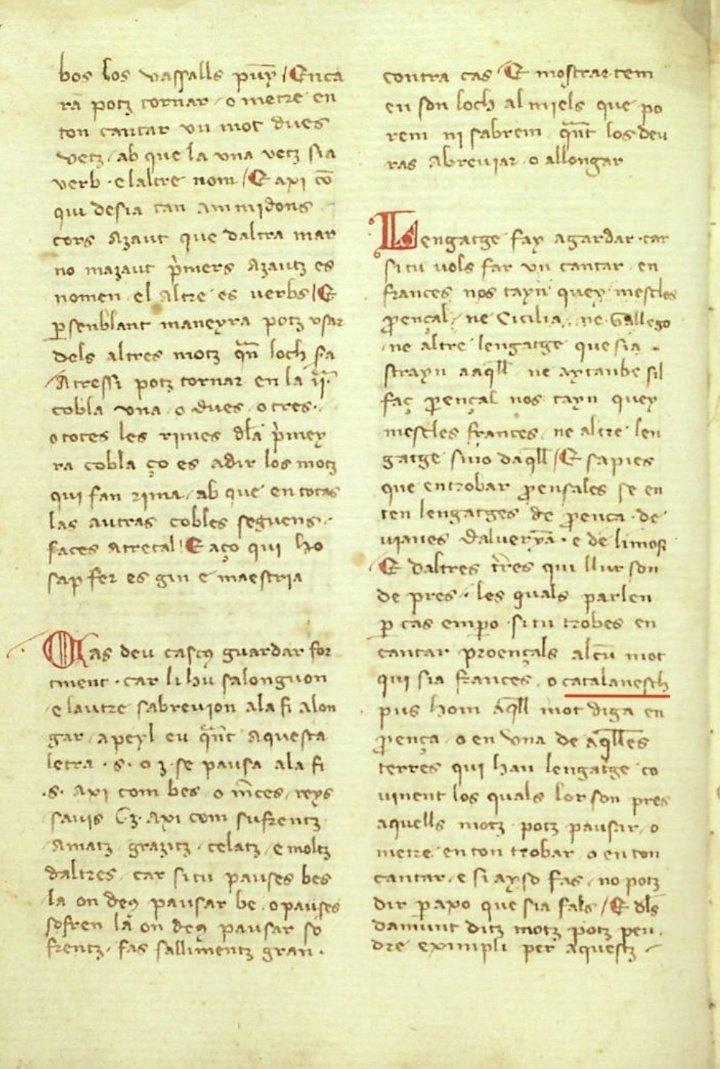 bos los vassalls puy / Enca
ra potz tornar / o metre en
ton cantar vn mot dues
vetz / ab que la vna vetz sia
verb · e laltre nom / E axi cō
qui desia tan ammidons
cors azaut que daltra mar
no mazaut p̄mers azautz es
nomen · el altre es verbs / E
ꝑ senblant maneyra potz vsar
dels altres motz qn̄ loch sa
Atressi potz tornar en la ij.ª
cobla vna · o dues · o tres ·
o totes les rimes dla p̄mey
ra cobla ço es adir los motz
qui fan rima / ab que en totas
las autras cobles seguens ·
faces atretal / E aço qui ho
sap fer es gin e maestria
Mas deu casc guardar for
tment · car li hu salonguon
e lautre sabreuion ala fi alon
gar / apeyl eu qn̄t aquesta
letra · s · o z · se pausa ala fi
· s · axi com bes o mces / reys
sauis E z · axi com sufrentz
amatz / grazitz · celatz / e moltz
daltres / car si tu pauses bes
la on deus pausar be / o pauses
sofren la on deus pausar so
frentz / fas fallimentz gran ·
contra cas E mostrar tem
en son loch al miels que po
rem ni sabrem / qn̄t los deu
ras abreuiar · o allongar
Lengatge fay agardar · car
si tu vols far vn cantar en
frances nos tayn quey mescles
ꝓençal / ne Cicilia / ne Gallego
ne altre lengatge que sia
strayn a aqll̄ ne aytanbe sil
faç ꝓençal nos tayn quey
mescles frances / ne altre len
gatge sino daqll̄ / E sapies
que en trobar ꝓensales se en
ten lengatges de ꝓença · de
vianes daluerya · e de limos
E daltres tr̄res qui llur son
de pres / les quals parlen
ꝑ cas empo · si tu trobes en
cantar proençals alcū mot
qui sia frances / o catalanesch
pus hom aqll̄ mot diga en
ꝓença / o en vna de aqll̄es
terres qui han lengatge co
uinent los quals lor son pres
aquells motz potz pausar / o
metre en ton trobar / o en ton
cantar / e si ayso fas / no potz
dir ꝑ axo que sia fals / E dls̄
damunt ditz motz potz pen
dre eximpli per aquestz